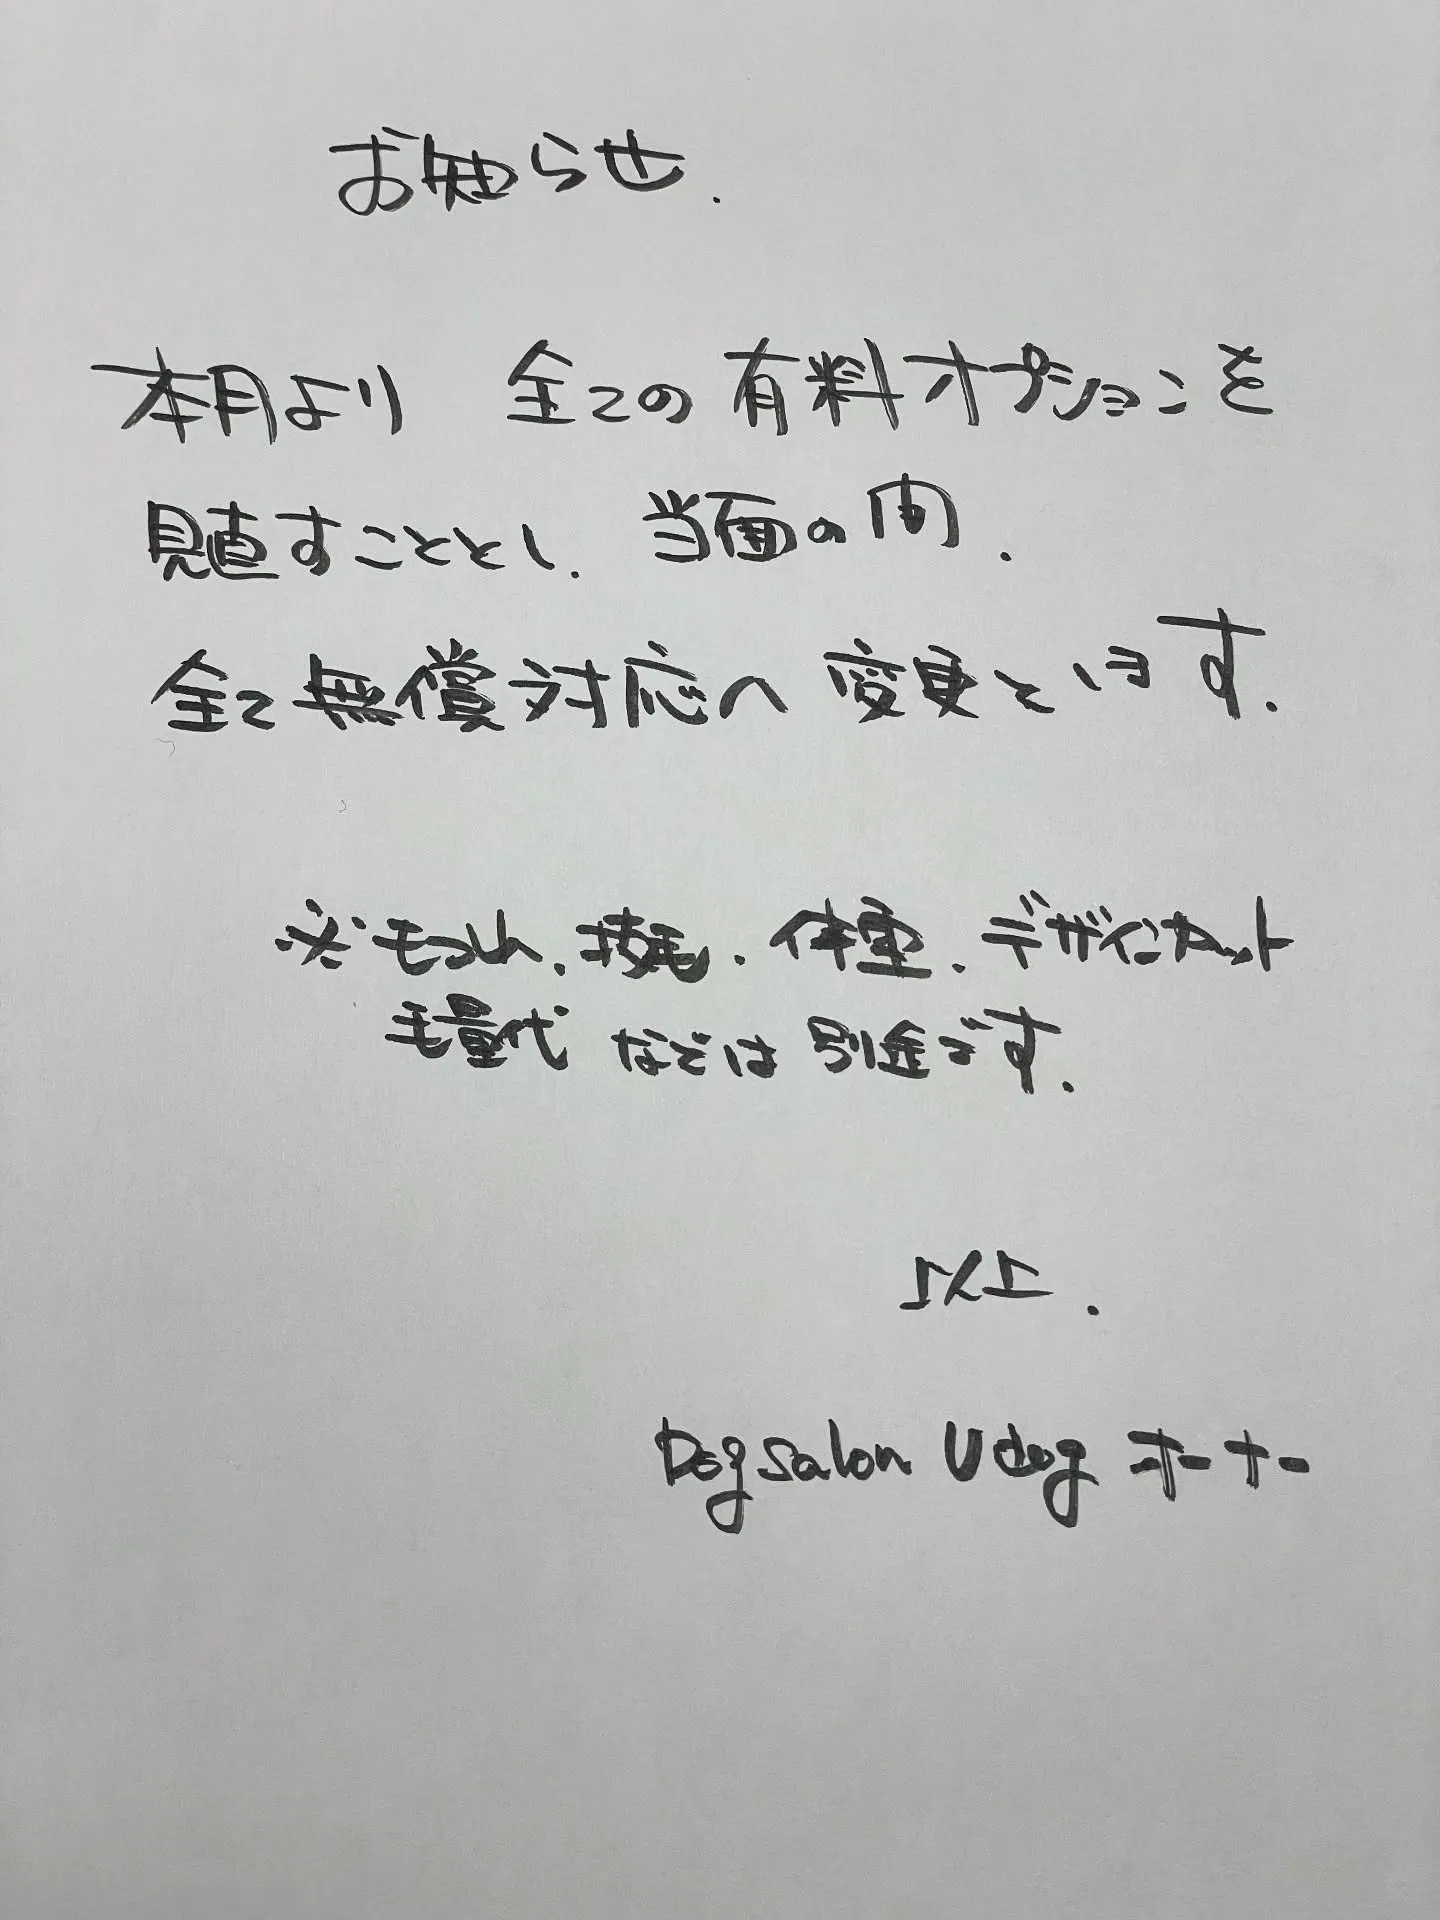 お知らせ.
本月より 全ての有料オプションを
見直すこととし. 当面の間.
全て無償対応へ変更とします.
※ もつれ. 抜毛. 体重. デザインカット
毛量代 などは別途です.
以上.
Dog salon U dog オーナー